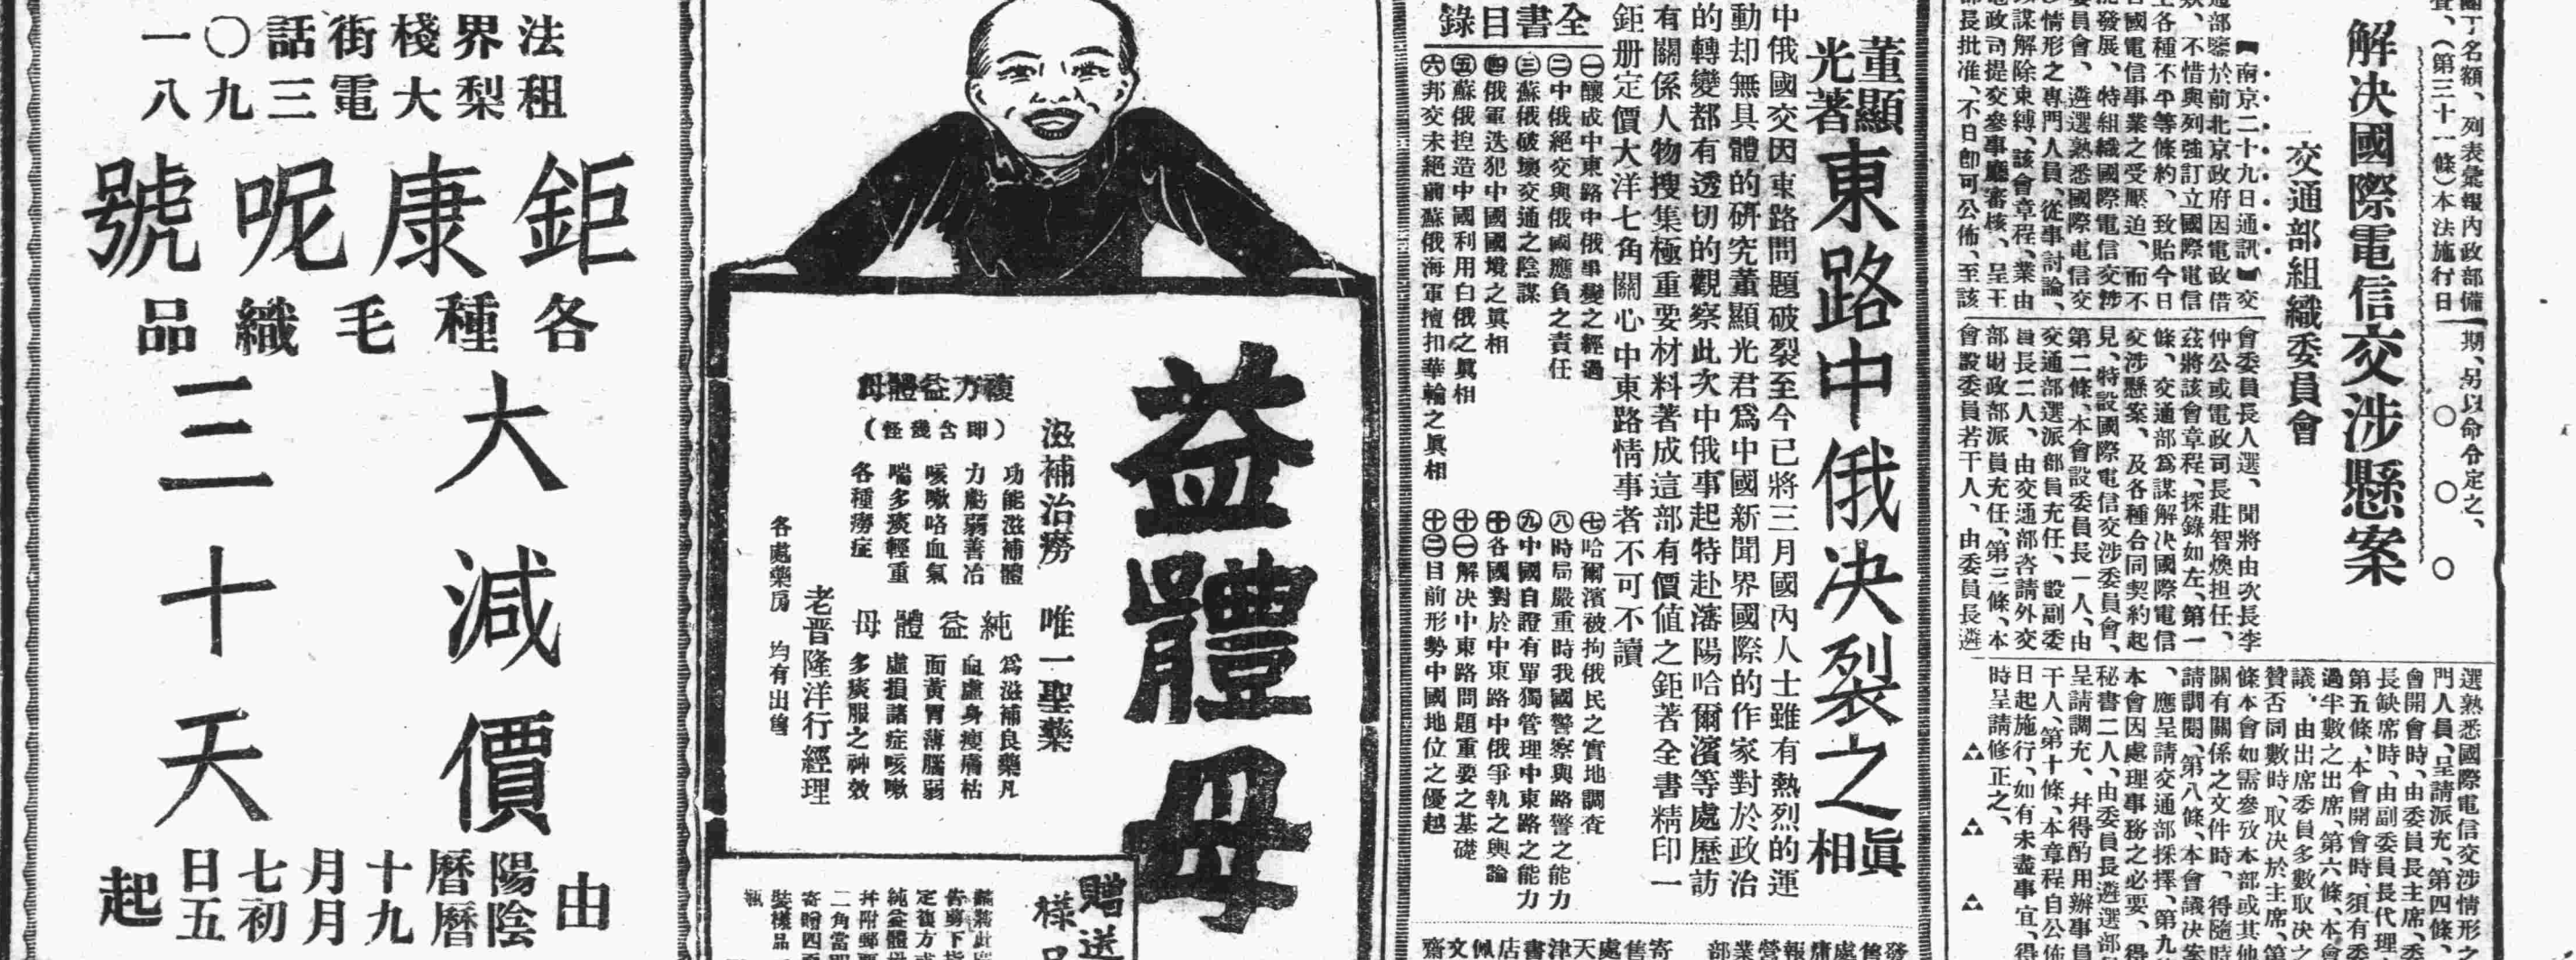 員名額、列表彙報內政部備
查、(第三十一條)本法施行日
期、另以命令定之、
解決國際電信交涉懸案
交通部組織委員會
【南京二十九日通訊】交
通部鑒於前北京政府因電政借
款、不惜與列強訂立國際電信
上各種不平等條約、致貽今日
國電信事業之受壓迫、而不
能發展、特組織國際電信交涉
委員會、遴選熟悉國際電信交
涉情形之專門人員、從事討論、
謀解除束縛、該會章程、業由
電政司提交參事廳審核、呈王
部長批准、不日即可公佈、至該
會委員長人選、聞將由次長李
仲公或電政司長莊智煥担任、
茲將該會章程、探錄如左、第一
條、交通部爲謀解決國際電信
交涉懸案、及各種合同契約起
見、特設國際電信交涉委員會、
第二條、本會設委員長一人、由
交通部選派部員充任、設副委
員長二人、由交通部咨請外交
部財政部派員充任、第三條、本
會設委員若干人、由委員長遴
選熟悉國際電信交涉情形之
門人員、呈請派充、第四條、
會開會時、由委員長主席、委
長缺席時、由副委員長代理
第五條、本會開會時、須有委
過半數之出席、第六條、本會
議、由出席委員多數取決之
贊否同數時、取決於主席、第
條本會如需參攷本部或其他
關有關係之文件時、得隨時
請調閱、第八條、本會議決案
、應呈請交通部採擇、第九
本會因處理事務之必要、得
秘書二人、由委員長遴選部
呈請調充、并得酌用辦事員
干人、第十條、本章程自公佈
日起施行、如有未盡事宜、得
時呈請修正之、
董顯光著
東路中俄決裂之眞相
中俄國交因東路問題破裂至今已將三月國內人士雖有熱烈的運
動却無具體的研究董顯光君爲中國新聞界國際的作家對於政治
的轉變都有透切的觀察此次中俄事起特赴瀋陽哈爾濱等處歷訪
有關係人物搜集極重要材料著成這部有價值之鉅著全書精印一
鉅册定價大洋七角關心中東路情事者不可不讀
全書目錄
㊀釀成中東路中俄事變之經過
㊁中俄絕交與俄國應負之責任
㊂蘇俄破壞交通之陰謀
㊃俄軍迭犯中國國境之眞相
㊄蘇俄捏造中國利用白俄之眞相
㊅邦交未絕前蘇俄海軍擅扣華輪之眞相
㊆哈爾濱被拘俄民之實地調查
㊇時局嚴重時我國警察與路警之能力
㊈中國自證有單獨管理中東路之能力
㊉各國對於中東路中俄爭執之輿論
(十一)解決中東路問題重要之基礎
(十二)目前形勢中國地位之優越
發售處庸報營業部
寄售處天津書店佩文齋
益體母
滋補治癆 唯一聖藥
複方益體母
(即含幾怪)
功能滋補體
力虧弱善治
咳嗽咯血氣
喘多痰輕重
各種癆症
純益體母
爲滋補良藥凡
血虛身瘦膚枯
面黃胃薄腦弱
虛損諸症咳嗽
多痰服之神效
老晉隆洋行經理
各處藥房 均有出售
贈送
樣品
法租界梨棧大街電話三〇九一八
鉅康呢號
各種毛織品
大減價
三十天
由陽曆十月七日
陰曆九月初五起